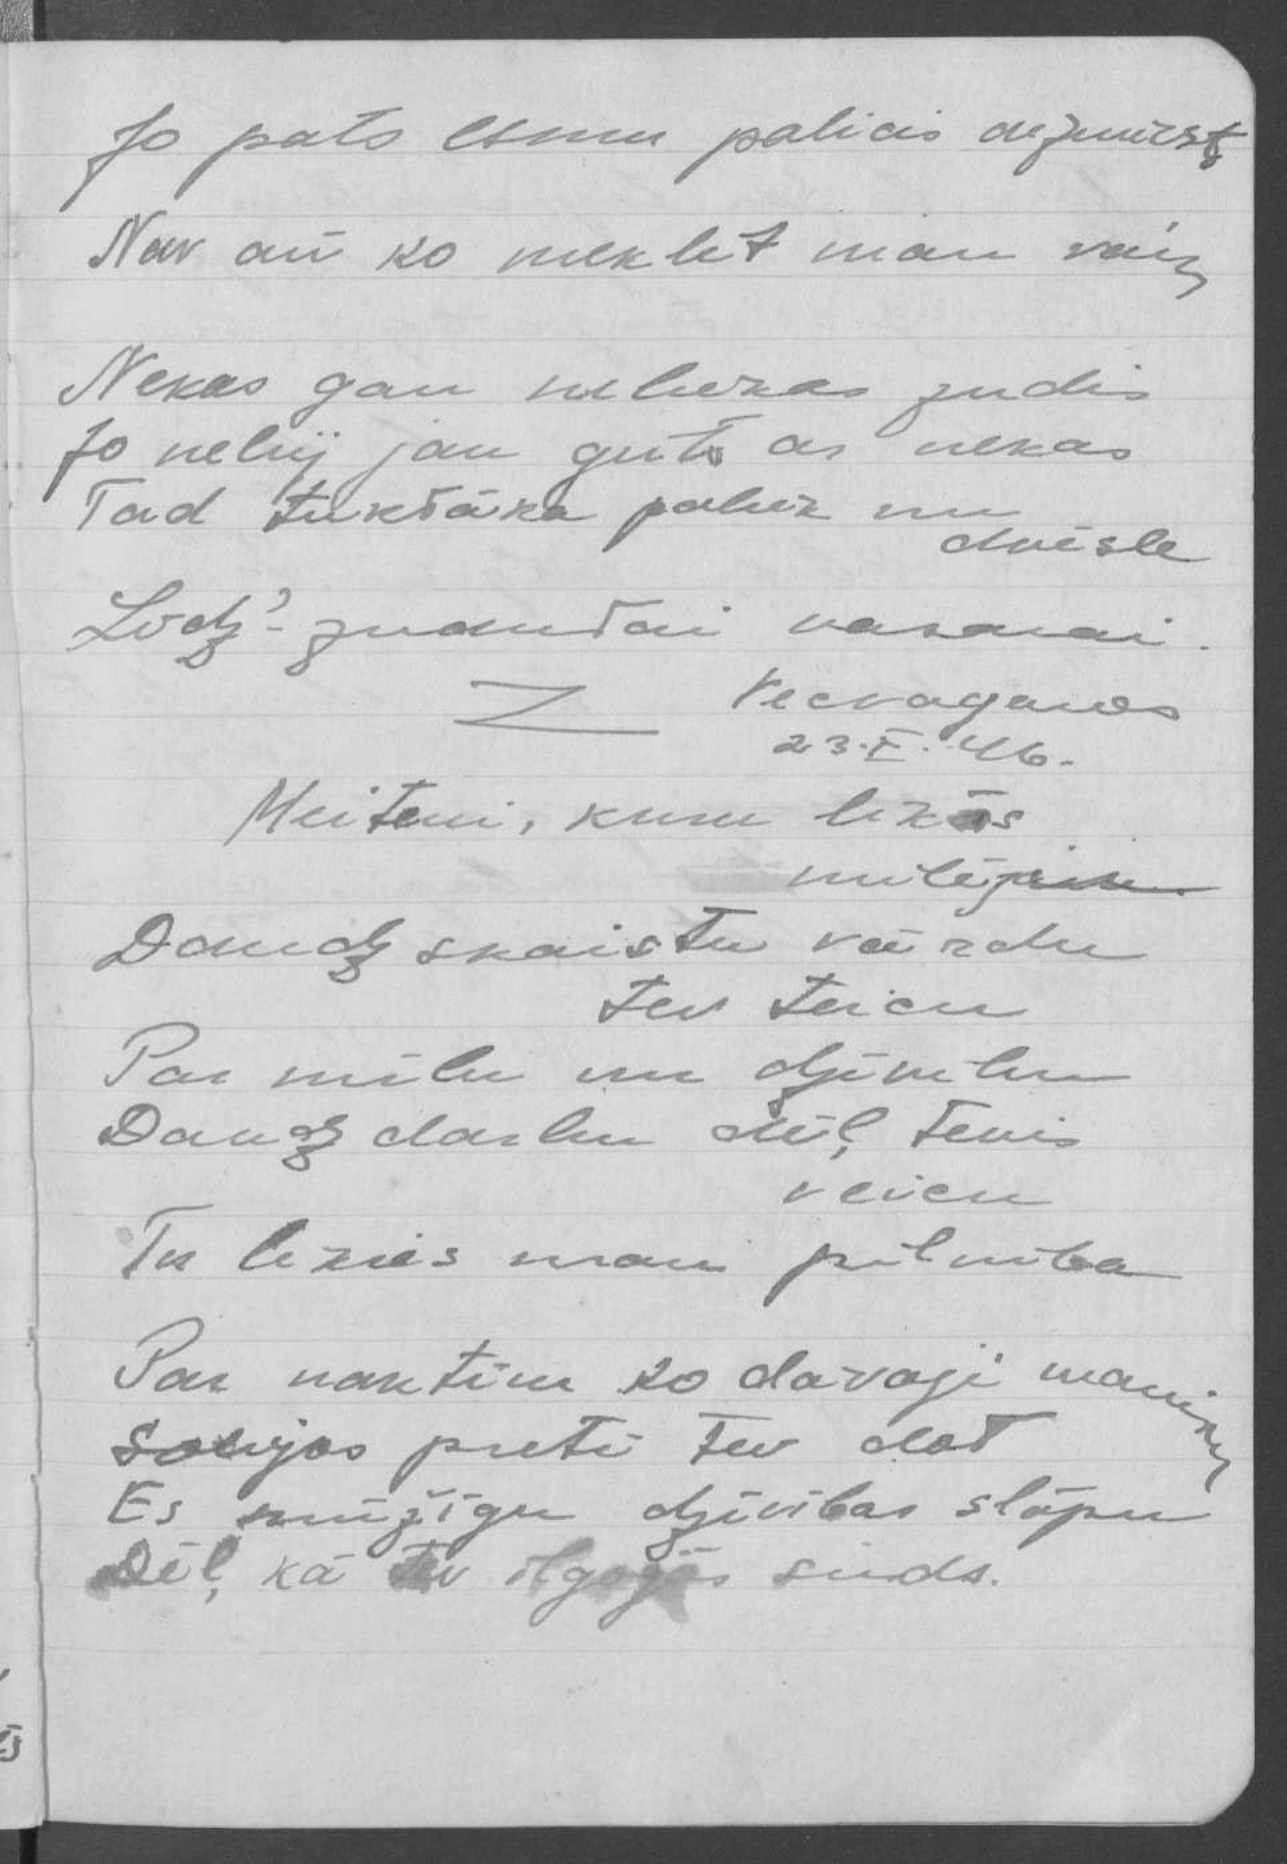 Jo pats esmu palicis aizmirsts
Nav arī ko meklēt man vairs
Nekas gan neliekas zudis
Jo nebij jau gūts ar nekas
Tad tukšāka paliek nu
dvēsle
Līdz' zudušai vasarai.
Vecvagaros
23.X.46.
Meitenei, kuru likās
mīlēju
Daudz skaistu vārdu
tev teicu
Par mīlu un dzīvību
Daudz darbu dēļ tevis
veicu
Tu likies man pilnība
Par naktīm ko dāvāji maniem
Solijos pretī tev dot
Es mūžīgu dzīvības slāpu
Dēļ, kā tev ilgojās sirds.